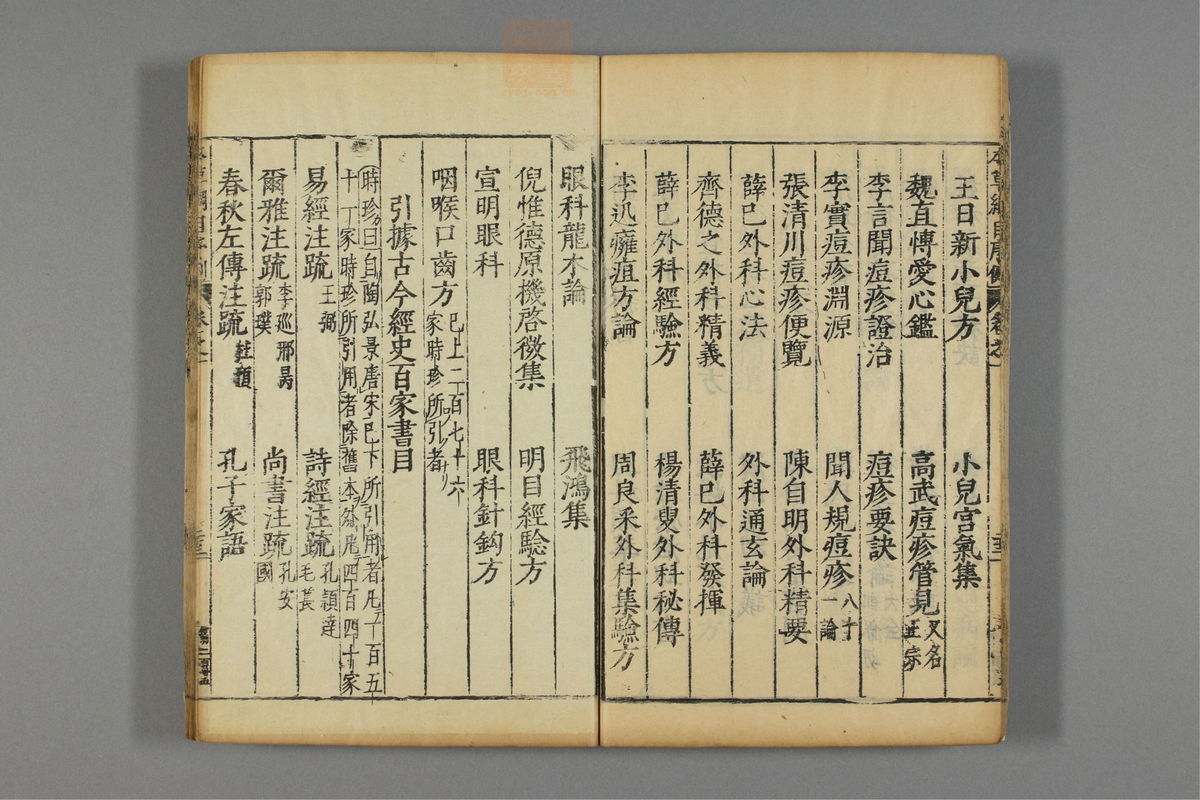 王日新小兒方　小兒宮氣集
魏直博愛心鑑　高武痘疹管見又名正宗
李言聞痘疹證治　痘疹要訣
李實痘疹淵源　聞人規痘疹八十一論
張清川痘疹便覽　陳自明外科精要
薛已外科心法　外科通玄論
齊德之外科精義　薛已外科發揮
薛已外科經驗方　楊清叟外科秘傳
李迅癰疽方論　周良采外科集驗方
眼科龍木論　飛鴻集
倪惟德原機啓微集　明目經驗方
宣明眼科　眼科針鉤方
咽喉口齒方已上二百七十六家時珍所引者
引據古今經史百家書目
時珍曰自陶弘景唐宋已下所引用者凡一百五
十一家時珍所引用者除舊本外凡四百四十家
易經注疏王弼　詩經注疏孔穎達毛萇
爾雅注疏李巡邢昺郭璞　尚書注疏孔安國
春秋左傳注疏杜預　孔子家語